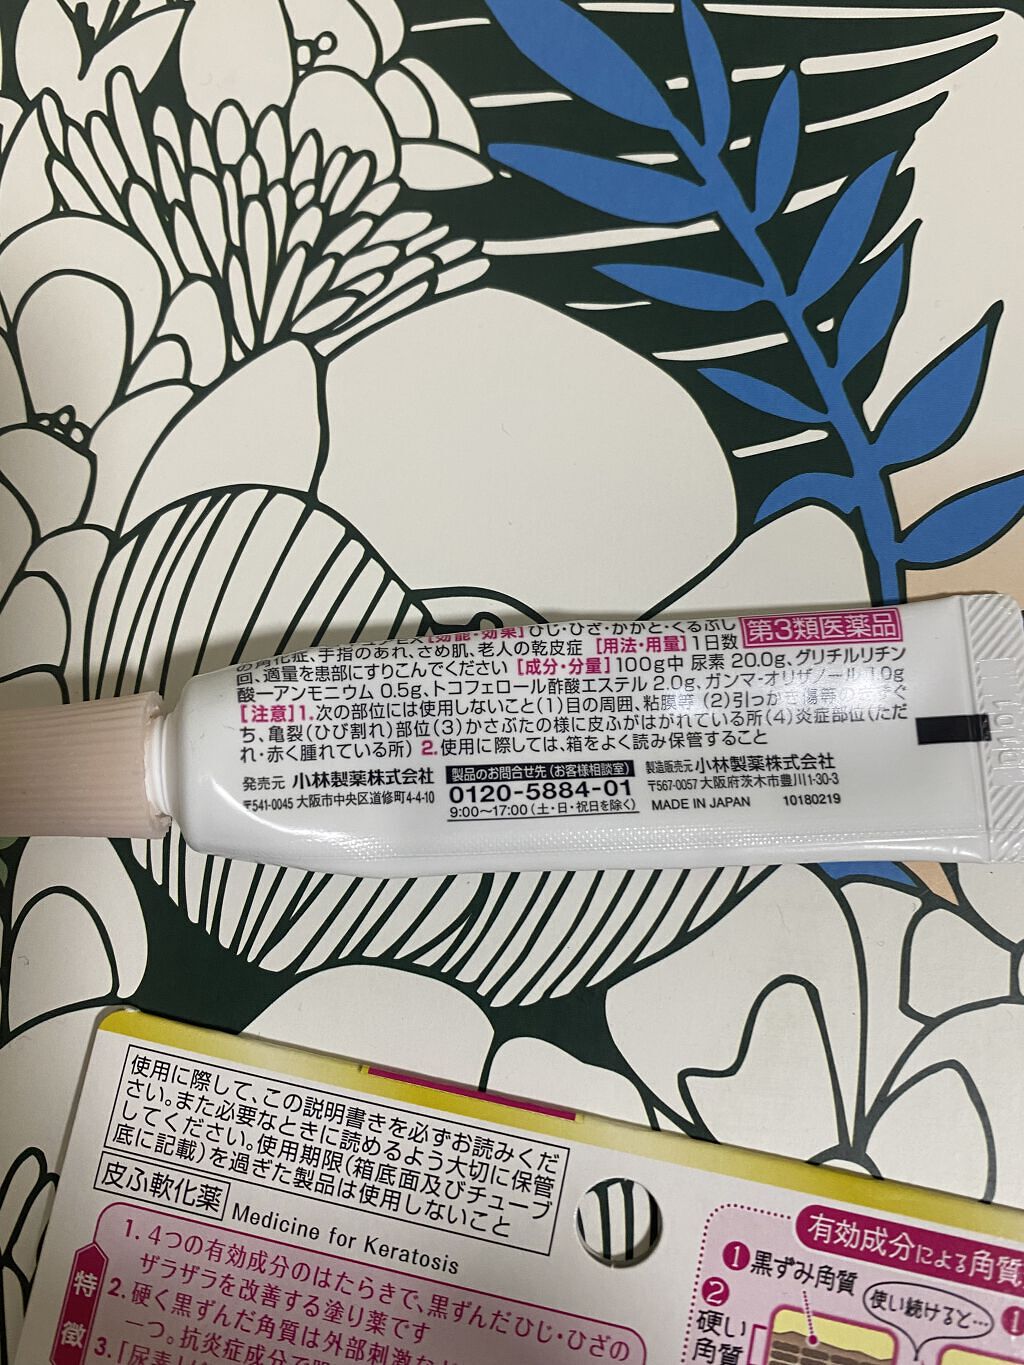 [効能・効果]ひじ・ひざ・かかと・くるぶし
の角化症、手指のあれ、さめ肌、老人の乾皮症 [用法・用量]1日数
第3類医薬品
回、適量を患部にすりこんでください [成分・分量]100g中 尿素 20.0g、グリチルリチン
酸一アンモニウム 0.5g、トコフェロール酢酸エステル 2.0g、ガンマ-オリザノール 1.0g
[注意]1.次の部位には使用しないこと(1)目の周囲、粘膜等 (2)引っかき傷等のきずぐ
ち、亀裂(ひび割れ)部位(3)かさぶたの様に皮ふがはがれている所(4)炎症部位(ただ
れ・赤く腫れている所) 2.使用に際しては、箱をよく読み保管すること
発売元 小林製薬株式会社
〒541-0045 大阪市中央区道修町4-4-10
製品のお問合せ先(お客様相談室)
0120-5884-01
9:00〜17:00(土・日・祝日を除く)
製造販売元 小林製薬株式会社
〒567-0057 大阪府茨木市豊川1-30-3
MADE IN JAPAN 10180219
使用に際して、この説明書きを必ずお読みくだ
さい。また必要なときに読めるよう大切に保管
してください。使用期限(箱底面及びチューブ
底に記載)を過ぎた製品は使用しないこと
皮ふ軟化薬 Medicine for Keratosis
特徴
1. 4つの有効成分のはたらきで、黒ずんだひじ・ひざの
ザラザラを改善する塗り薬です
2. 硬く黒ずんだ角質は外部刺激な
一つ。抗炎症成分で
3.「尿素」
有効成分による角質
1 黒ずみ角質
2 硬い
角質
使い続けると…